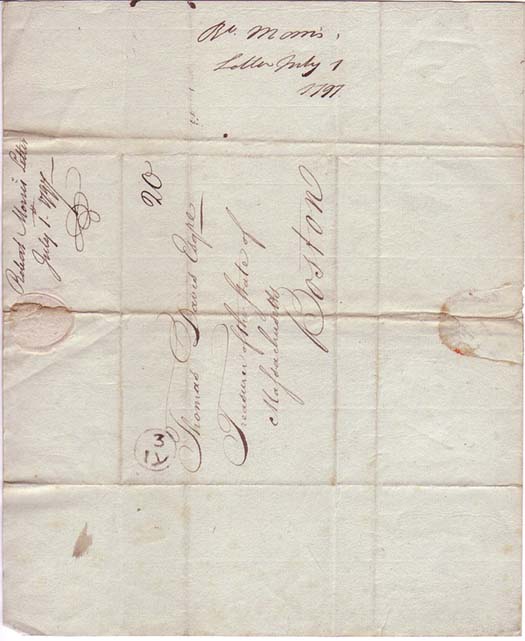 Rt. Morris,
Letter July 1
1797
Robert Morris Letter
July 1. 1797
20
Thomas Davis Esqre
Treasurer of the State of
Massachusetts
Boston